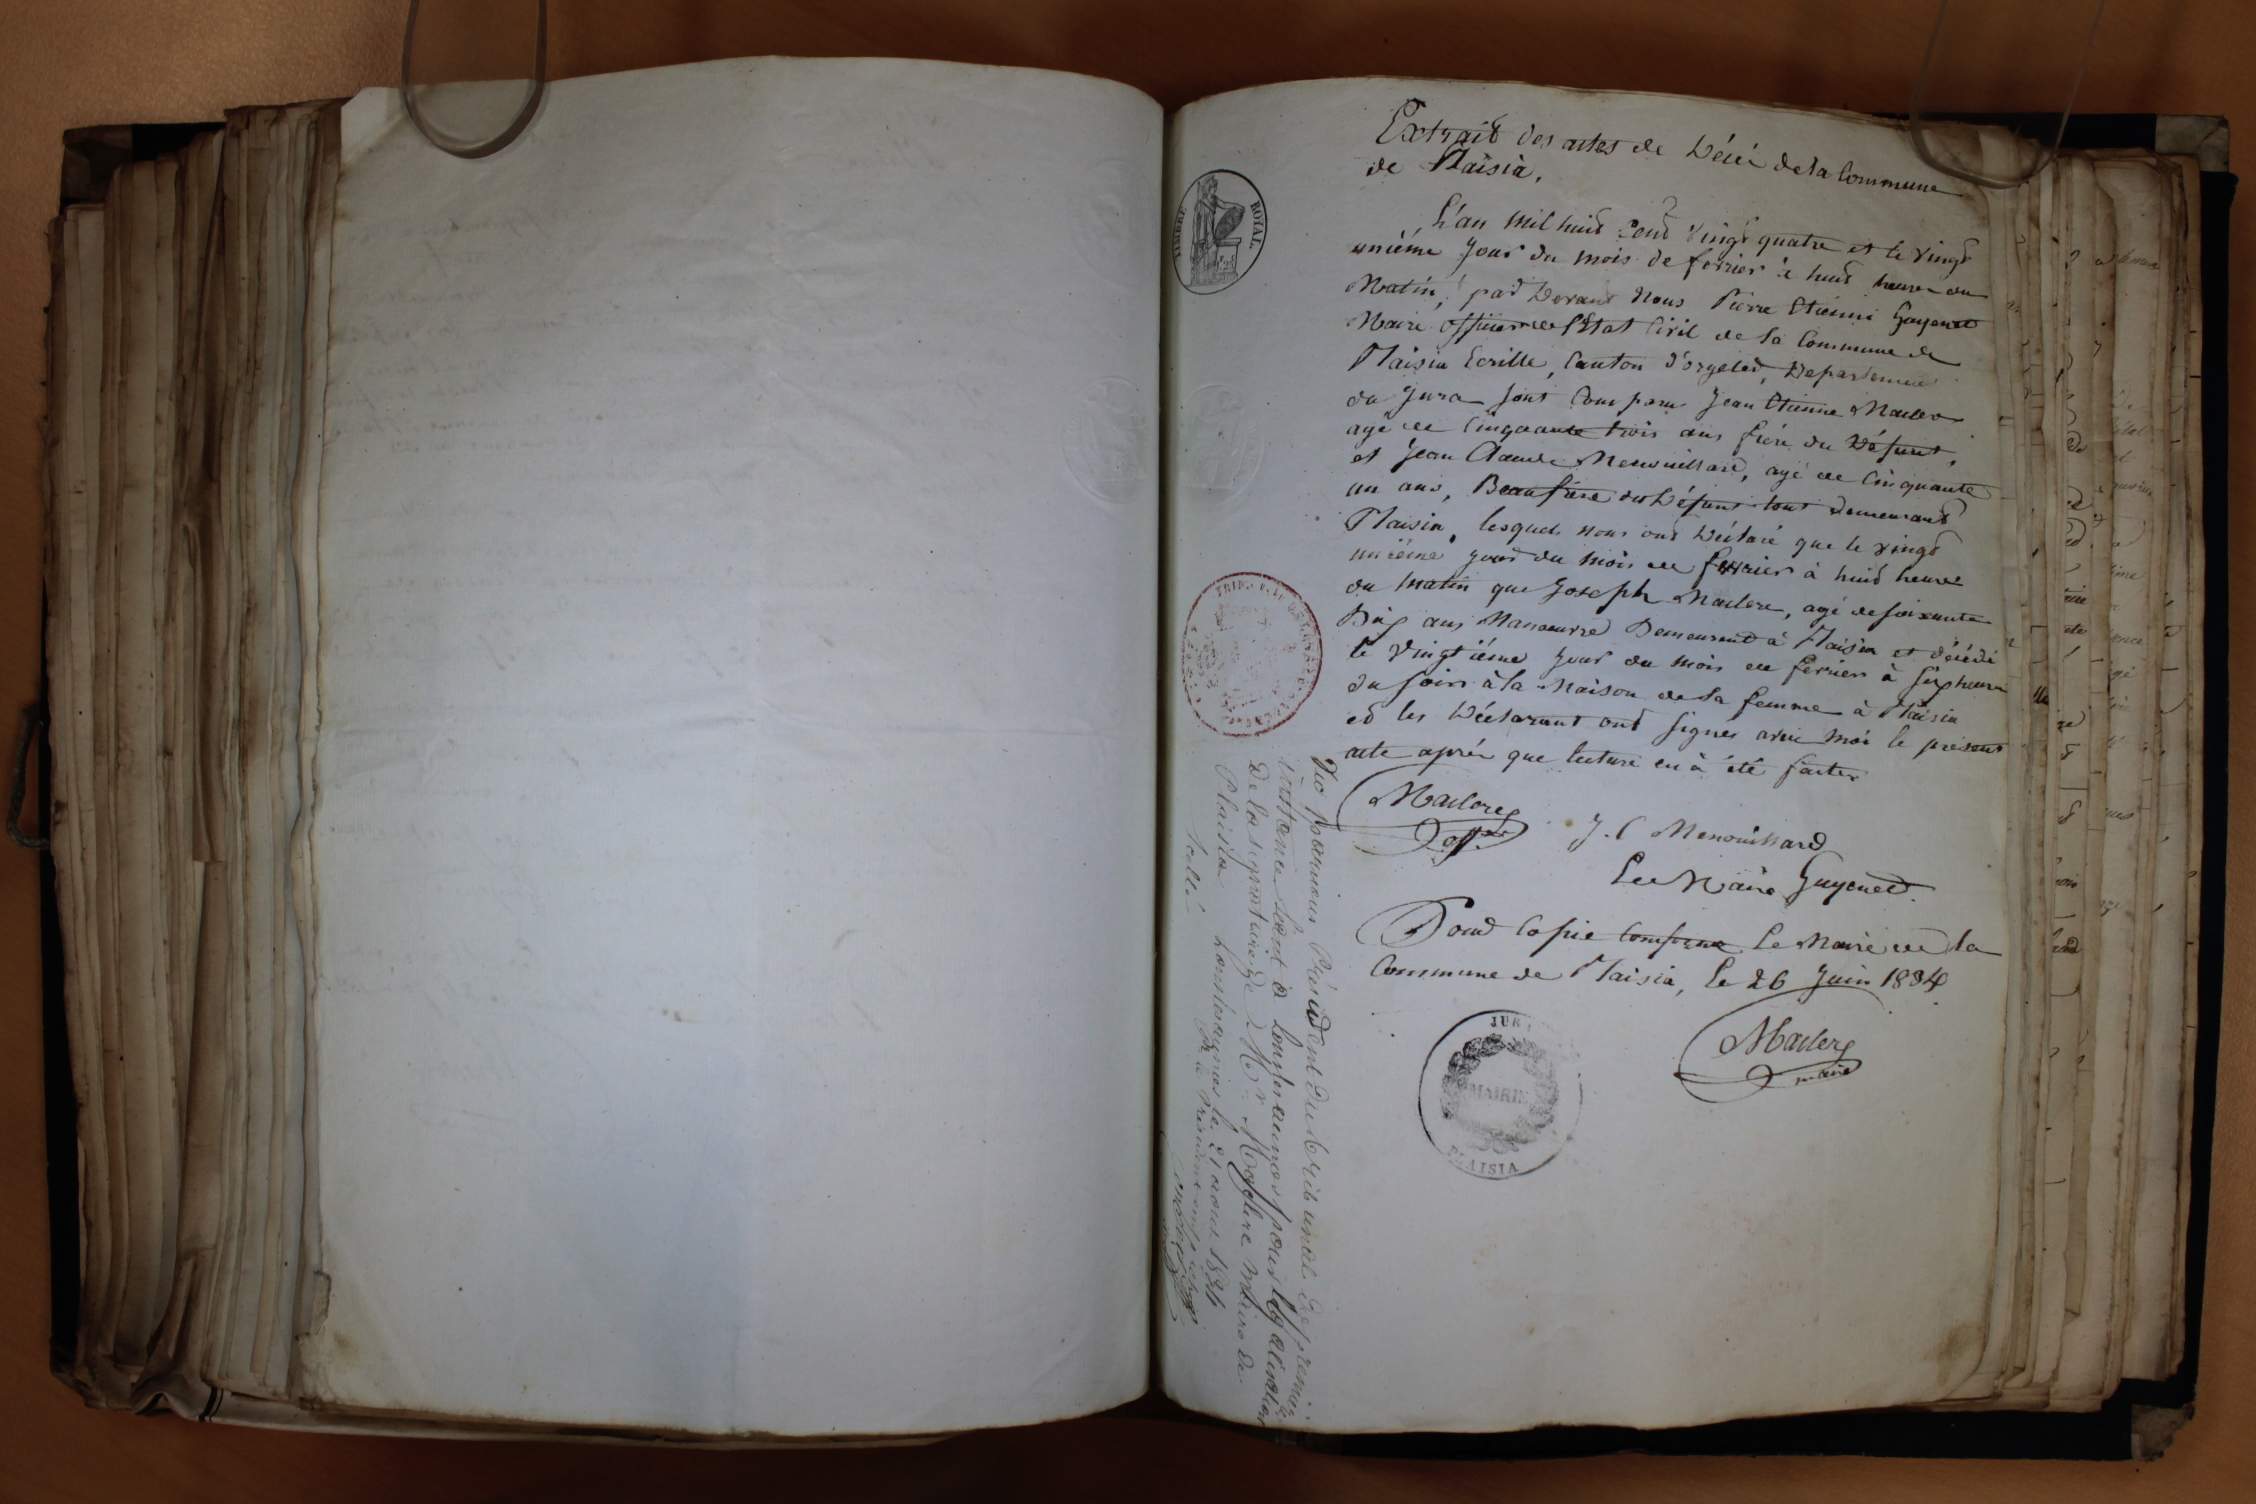 Extrait des actes de Décè de la Commune
de Plaisia.
L'an mil huit Cent vingt quatre et le vingt
unième jour du mois de fevrier à huit heure du
Matin, par Devant Nous Pierre Etienne Guyenet
Maire officier de l'Etat Civil de la Commune de
Plaisia Ecrille, Canton d'orgelet, Departement
du Jura sont Comparu Jean Etienne Maclere
agé de Cinquante trois ans frère du Défunt,
et Jean Claude Menouillard, agé de Cinquante
un ans, Beaufrère du Défunt tout Demeurant
Plaisia, lesquels nous ont Déclaré que le vingt
unième jour du mois de fevrier à huit heure
du matin que Joseph Maclere, agé de soixante
Dix ans Manoeuvre Demeurant à Plaisia et décédé
le vingtième jour du mois de fevrier à six heure
du soir à la Maison de sa femme à Plaisia
et les Déclarant ont signer avec moi le présent
acte après que lecture en à été faite
Maclere
J. C Menouillard
Le Maire Guyenet.
Pour Copie Conforme Le Maire de la
Commune de Plaisia, Le 26 Juin 1834
Maclere
maire
JURA
MAIRIE
PLAISIA
TIMBRE ROYAL
Vu par nous, Président du tribunal De premiere
instance séant à Lons le saunier, pour légalisation
De la signature De Mr Maclere Maire de
Plaisia Lons le saunier le 21 aout 1834